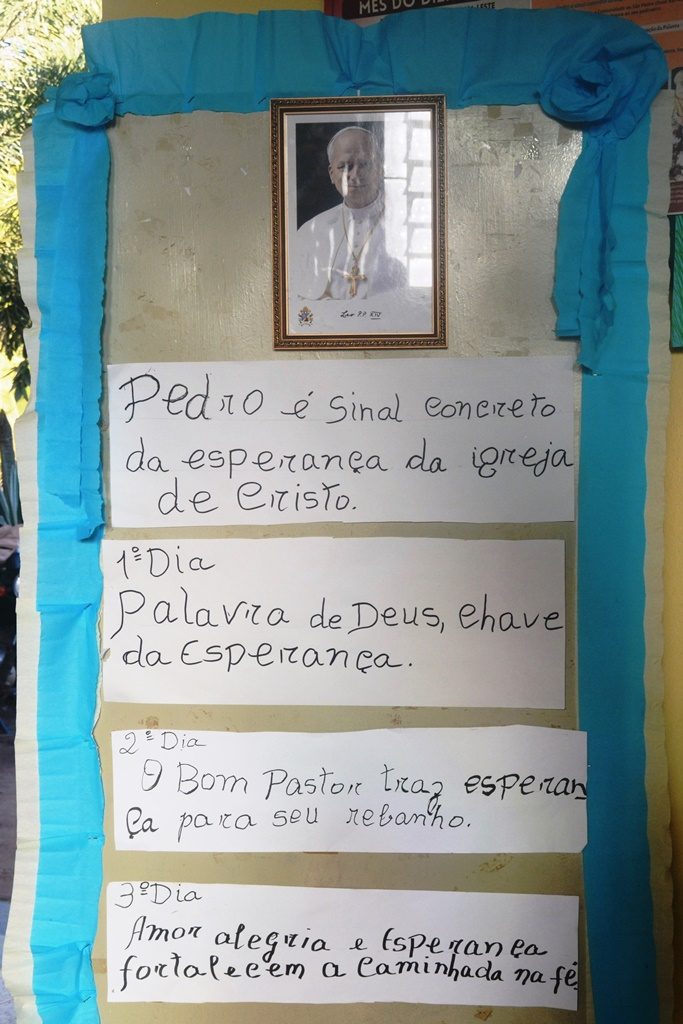 MÊS DO
Leo P.P. XIV
Pedro é sinal concreto
da esperança da igreja
de Cristo.
1º Dia
Palavra de Deus, chave
da Esperança.
2º Dia
O Bom Pastor traz esperan
ça para seu rebanho.
3º Dia
Amor alegria e Esperança
fortalecem a caminhada na fé